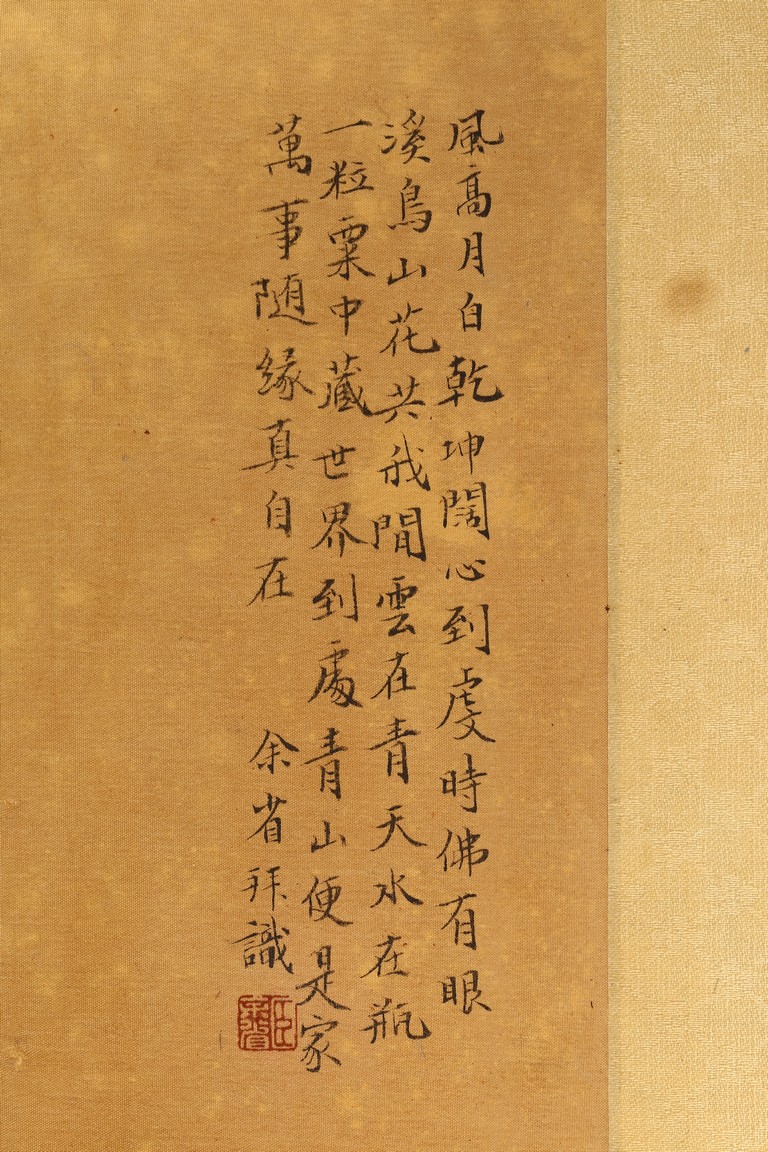 風高月白乾坤闊心到虔時佛有眼
溪鳥山花共我閒雲在青天水在瓶
一粒粟中藏世界到處青山便是家
萬事随緣真自在 余省拜識